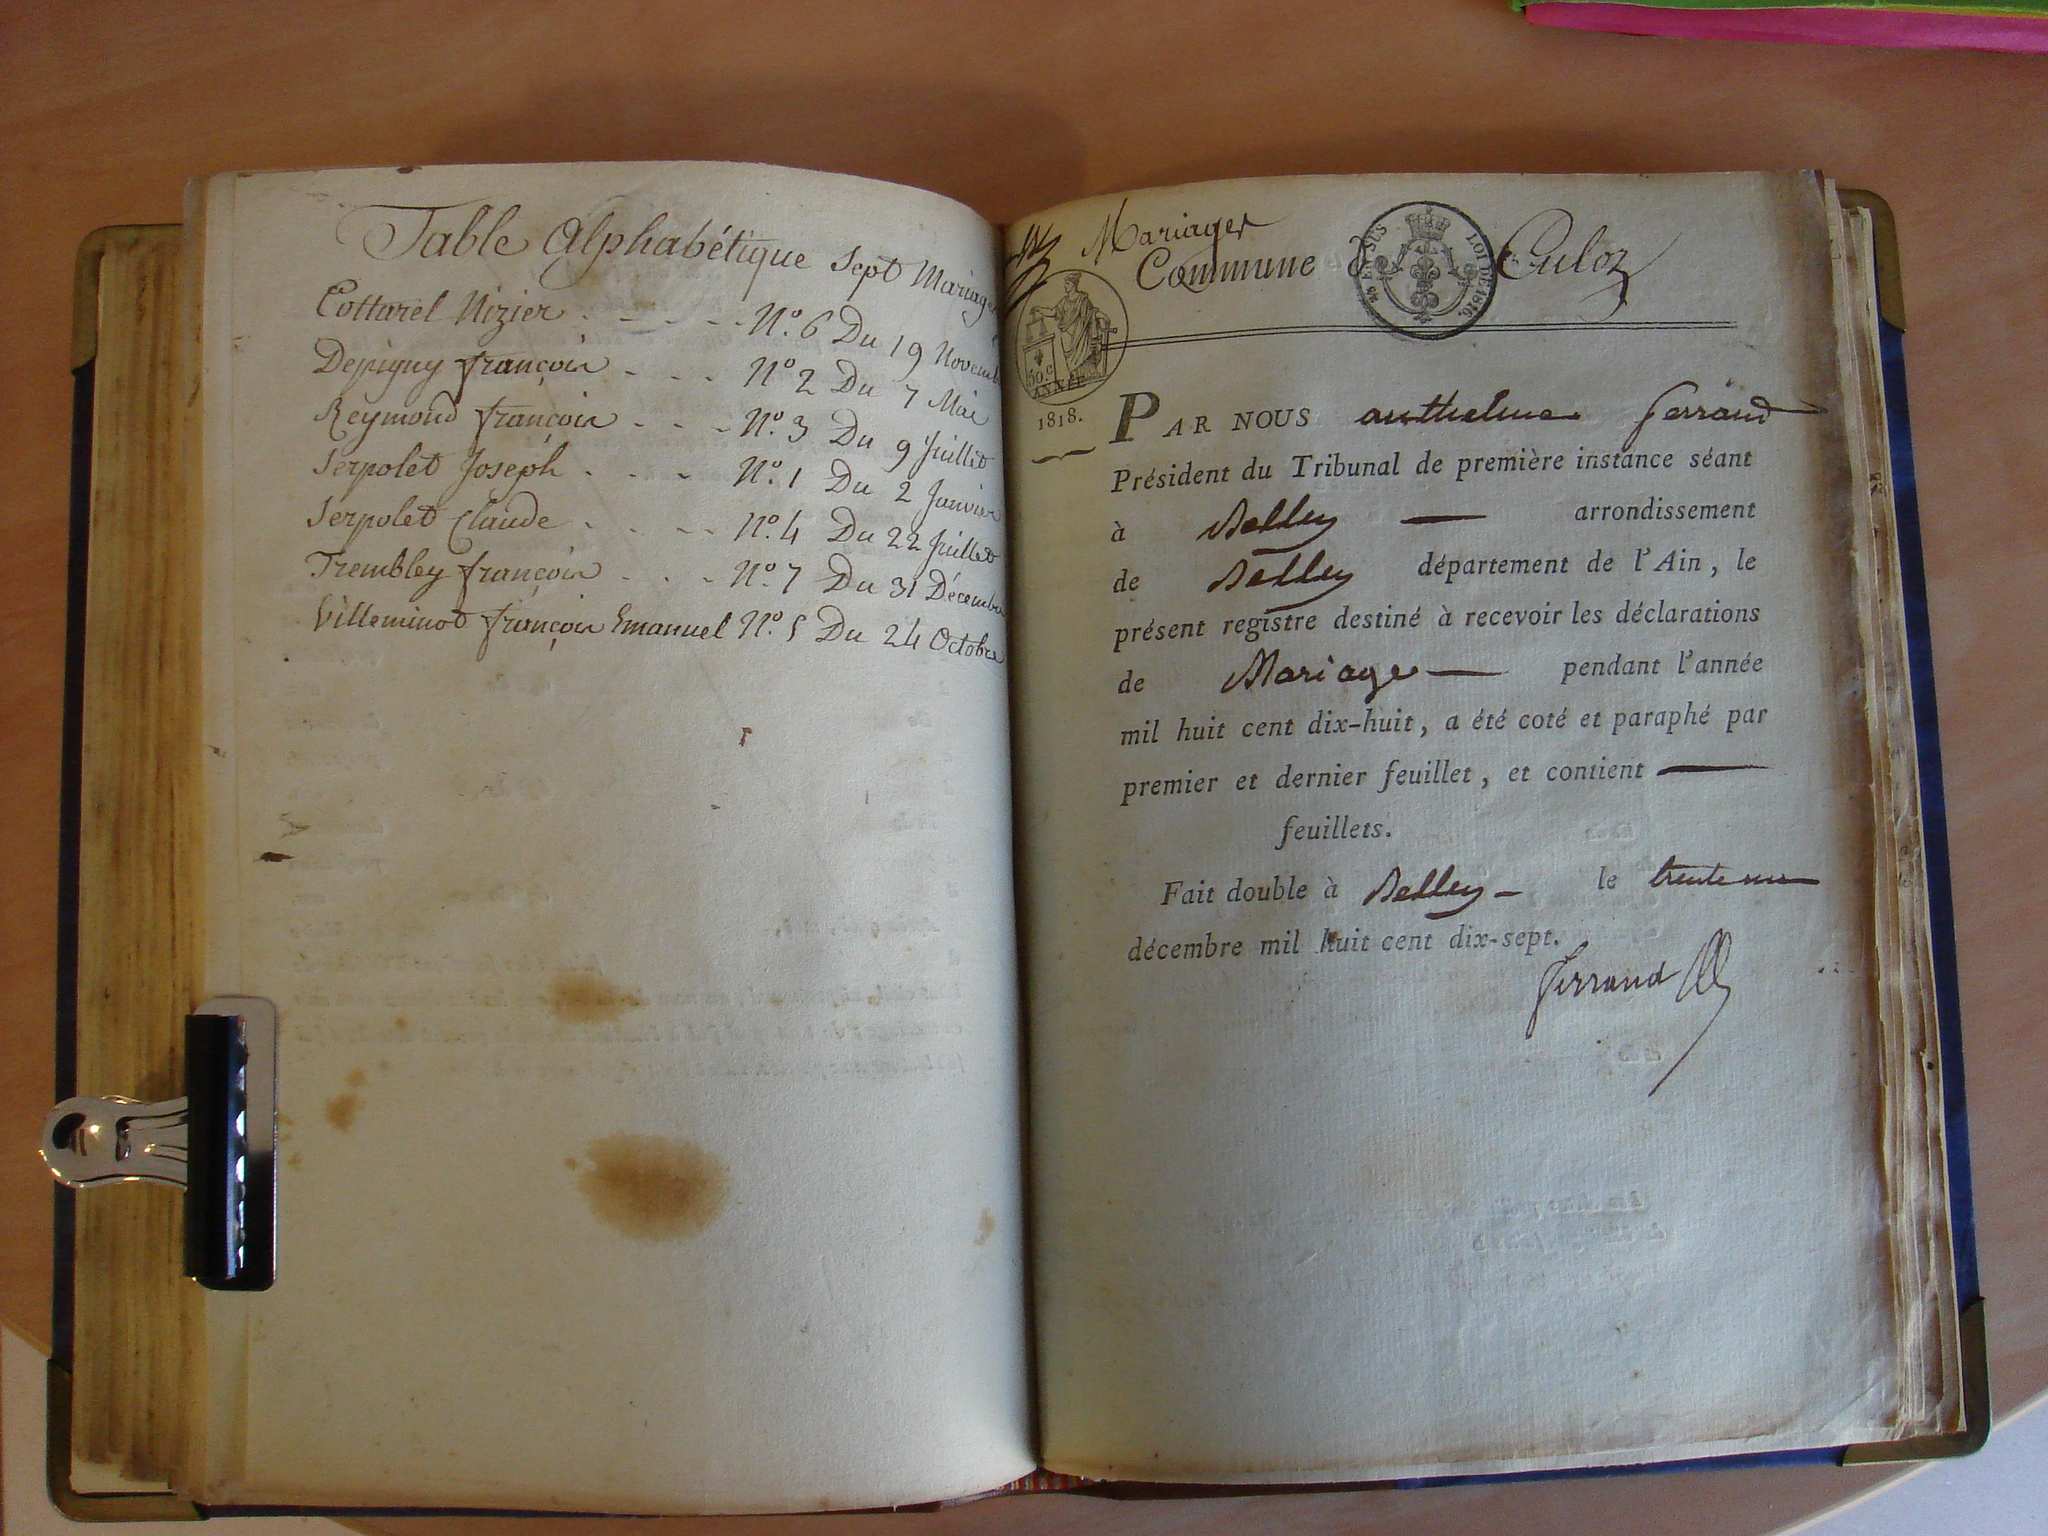 Table Alphabétique Sept Mariages
Cottarel Nizier . - - - - N.o 6 Du 19 Novemb
Depigny françois - - . N.o 2 Du 7 Mai
Reymond françois - - - N.o 3 Du 9 Juillet
Serpolet Joseph . . . N.o 1 Du 2 Janvier
Serpolet Claude . . - - N.o 4 Du 22 Juillet
Trembley françois . . - N.o 7 Du 31 Décembre
Villeminot françois Emanuel N.o 5 Du 24 Octobre
Mariages
Commune d Culoz
EN SUS LOI DE 1816.
50.c
ANNÉE
1818.
PAR NOUS anthelme ferrand
Président du Tribunal de première instance séant
à Belley arrondissement
de Belley département de l'Ain, le
présent registre destiné à recevoir les déclarations
de Mariage pendant l'année
mil huit cent dix-huit, a été coté et paraphé par
premier et dernier feuillet, et contient
feuillets.
Fait double à Belley le trente un
décembre mil huit cent dix-sept.
ferrand